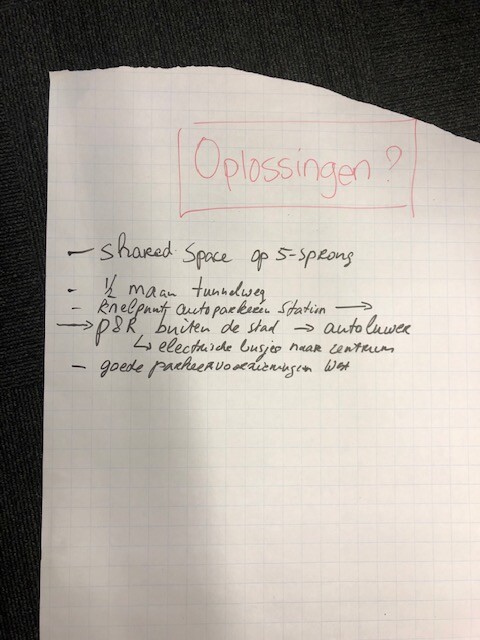 Oplossingen?
- shared space op 5-sprong
- 1/2 maan tunnelweg
- knelpunt autoparkeren station →
→ P&R buiten de stad → autoluwer
↳ electrische busjes naar centrum
- goede parkeervoorzieningen West